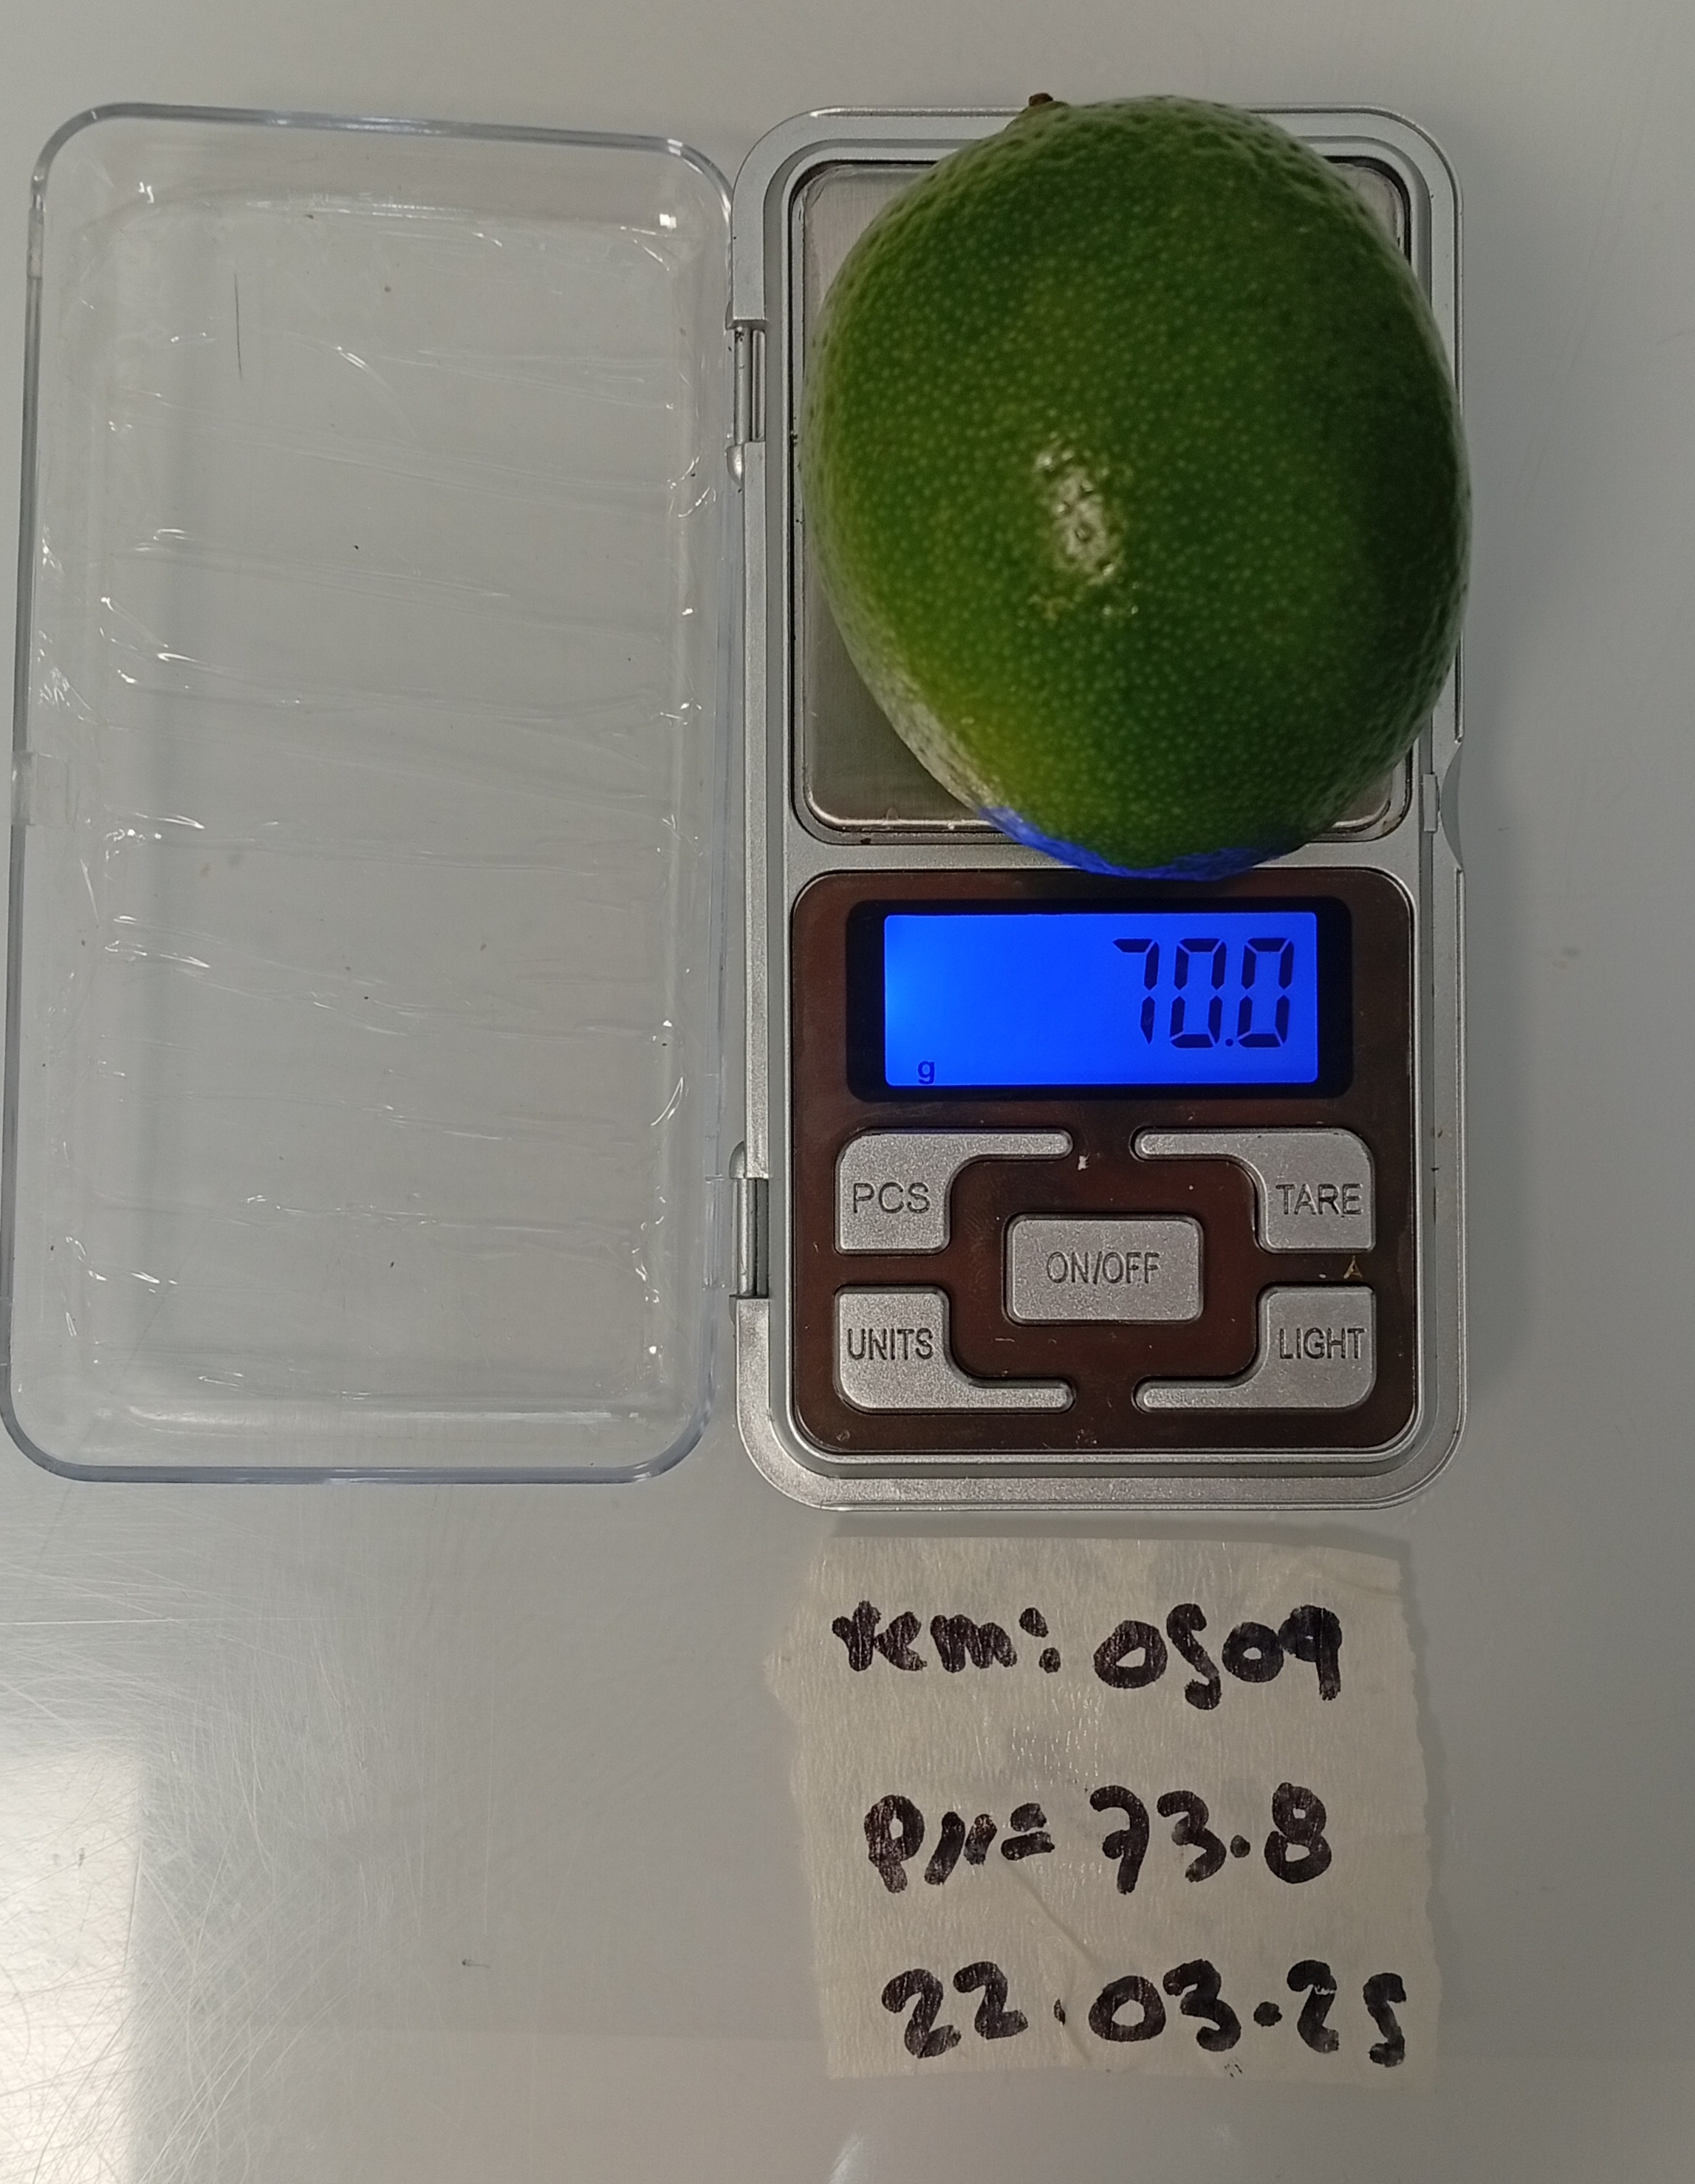 70.0
g
PCS
TARE
ON/OFF
UNITS
LIGHT
rem: 0509
PN= 73.8
22.03.25